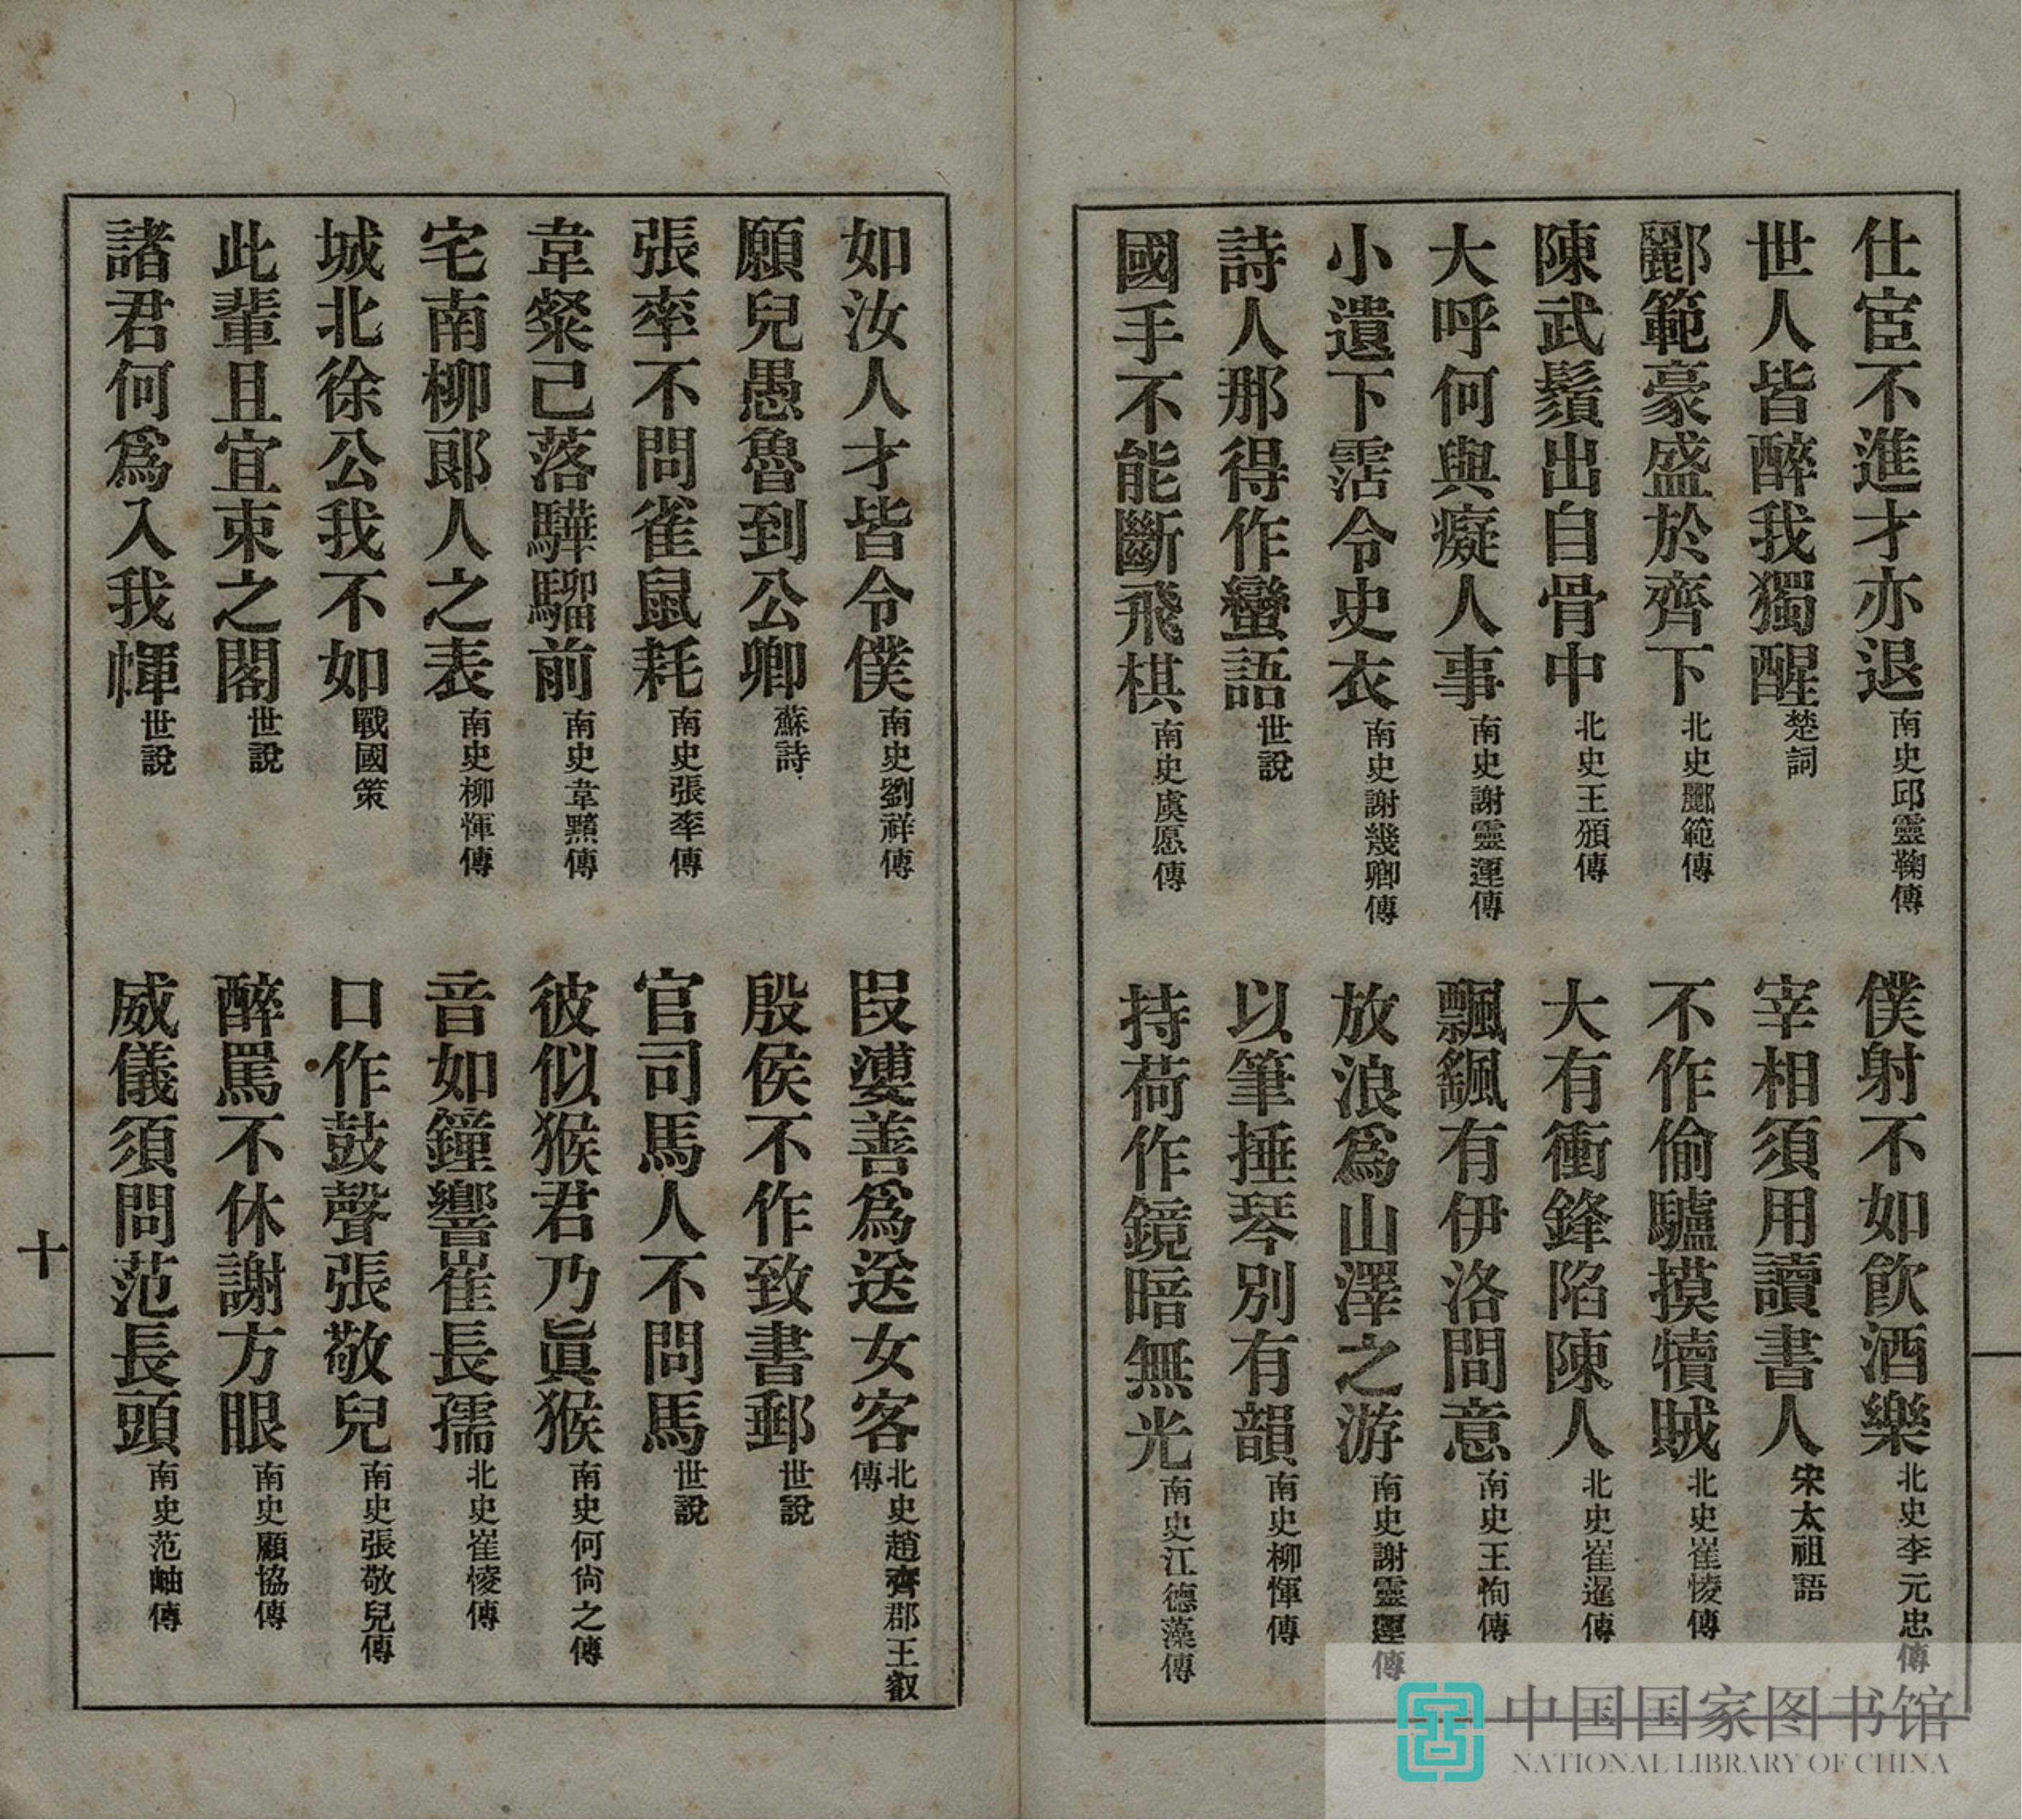 仕宦不進才亦退南史邱靈鞠傳　僕射不如飲酒樂北史李元忠傳
世人皆醉我獨醒楚詞　宰相須用讀書人宋太祖語
酈範豪盛於齊下北史酈範傳　不作偷驢摸犢賊北史崔㥄傳
陳武鬚出自骨中北史王頒傳　大有衝鋒陷陳人北史崔暹傳
大呼何與癡人事南史謝靈運傳　飄颻有伊洛間意南史王恂傳
小遺下霑令史衣南史謝幾卿傳　放浪爲山澤之游南史謝靈運傳
詩人那得作蠻語世說　以筆捶琴別有韻南史柳惲傳
國手不能斷飛棋南史虞愿傳　持荷作鏡暗無光南史江德藻傳
如汝人才皆令僕南史劉祥傳　叚𡝤善爲送女客北史趙齊郡王叡傳
願兒愚魯到公卿蘇詩　殷侯不作致書郵世說
張率不問雀鼠耗南史張率傳　官司馬人不問馬世說
韋粲己落驊騮前南史韋黯傳　彼似猴君乃眞猴南史何尙之傳
宅南柳郎人之表南史柳惲傳　音如鐘響崔長孺北史崔㥄傳
城北徐公我不如戰國策　口作鼓聲張敬兒南史張敬兒傳
此輩且宜束之閣世說　醉罵不休謝方眼南史顧協傳
諸君何爲入我㡓世說　威儀須問范長頭南史范岫傳
十
中国国家图书馆
NATIONAL LIBRARY OF CHINA